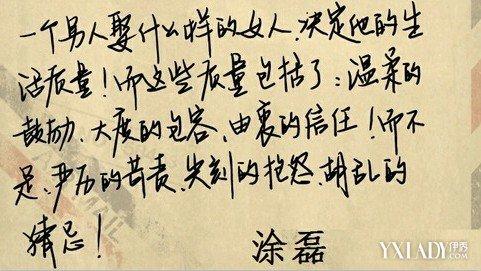 一个男人娶什么样的女人.决定他的生
活质量!而这些质量包括了:温柔的
鼓励、大度的包容、由衷的信任!而不
是、严厉的苛责、尖刻的抱怨、胡乱的
猜忌!
涂磊
YXLADY伊秀
.com